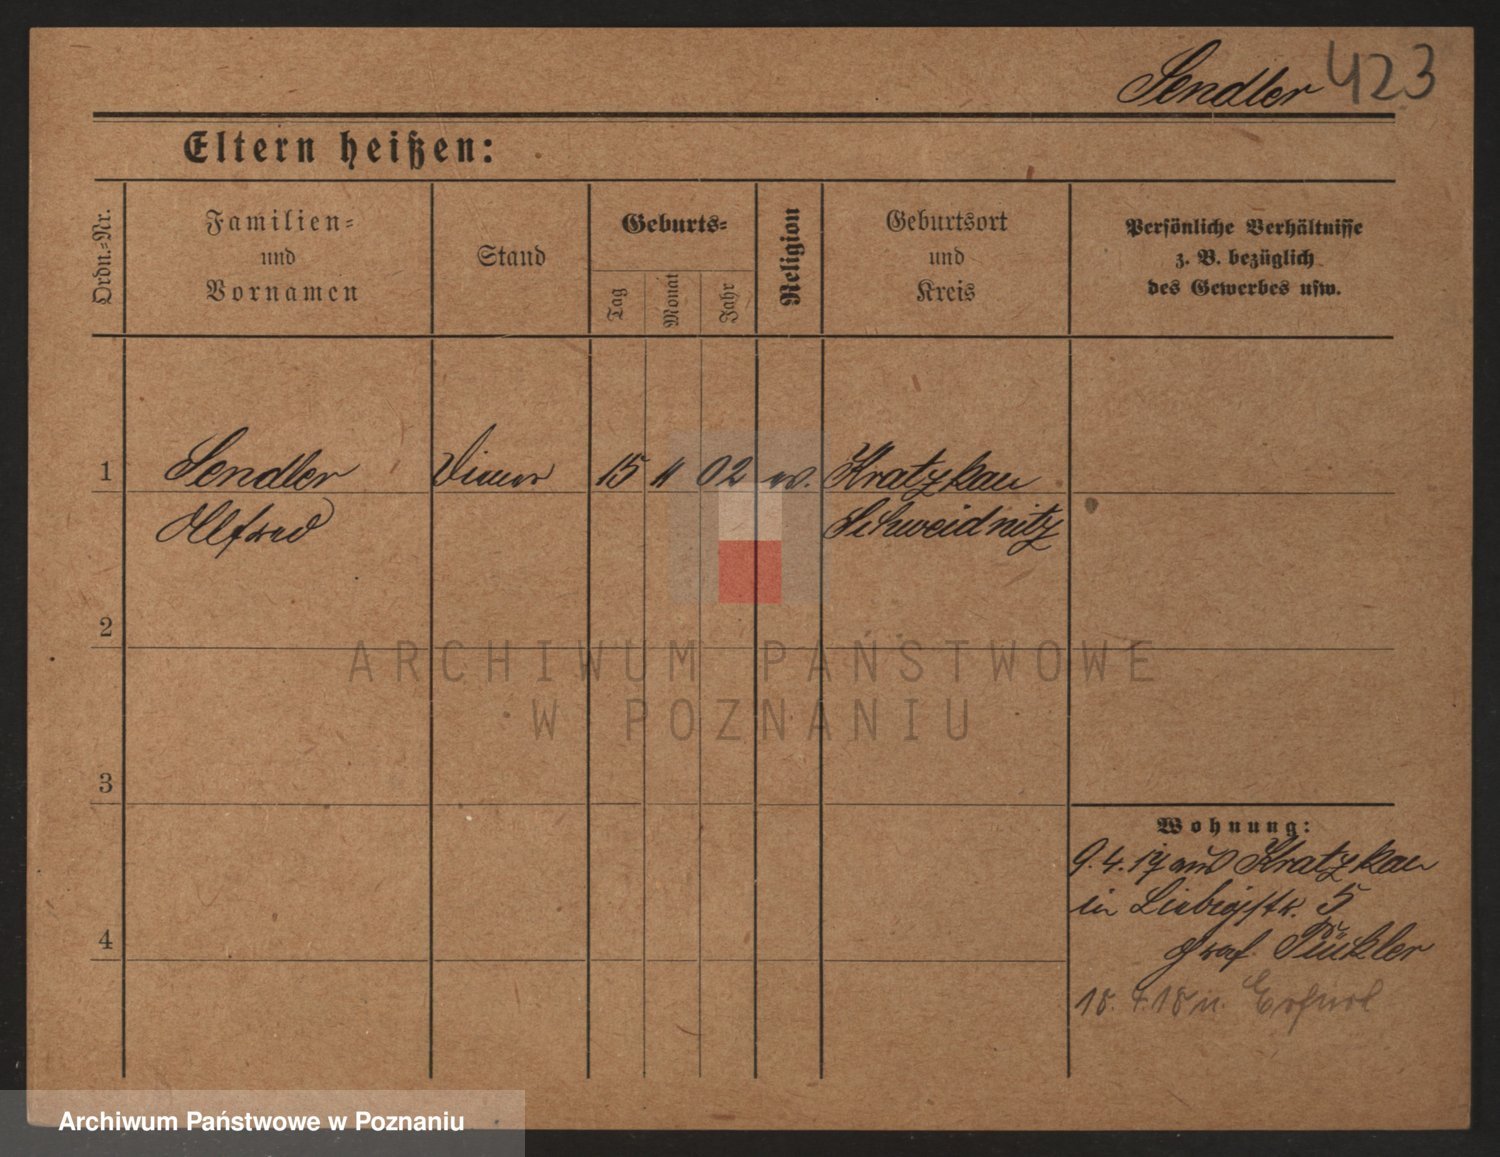 Sendler 423
Eltern heißen:
Ordn.=Nr.
Familien=
und
Vornamen
Stand
Geburts=
Tag
Monat
Jahr
Religion
Geburtsort
und
Kreis
Persönliche Verhältnisse
z. B. bezüglich
des Gewerbes usw.
1 Sendler Diener 15 11 02 ev. Kratzkau
Alfred Schweidnitz
2
3
4
Wohnung:
9.4.17 aus Kratzkau
in Liebigstr. 5
Graf Pückler
18. 4. 18 n. Erfurt
ARCHIWUM PAŃSTWOWE
W POZNANIU
Archiwum Państwowe w Poznaniu